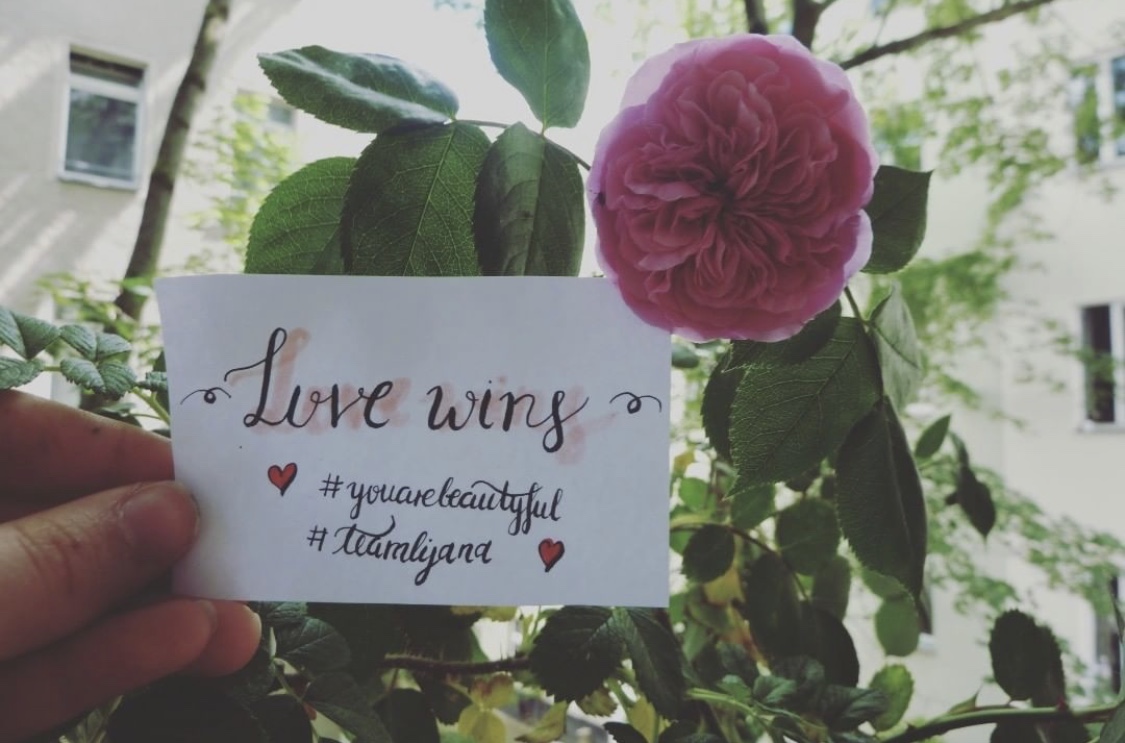 Love wins
#youarebeautyful
#teamlijana